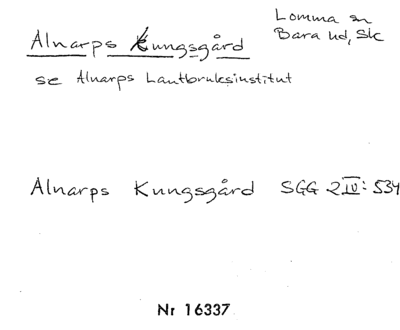 Alnarps Kungsgård
Lomma sn
Bara hd, Sk
se Alnarps Lantbruksinstitut
Alnarps Kungsgård SGG 2 IV: 534
Nr 16337